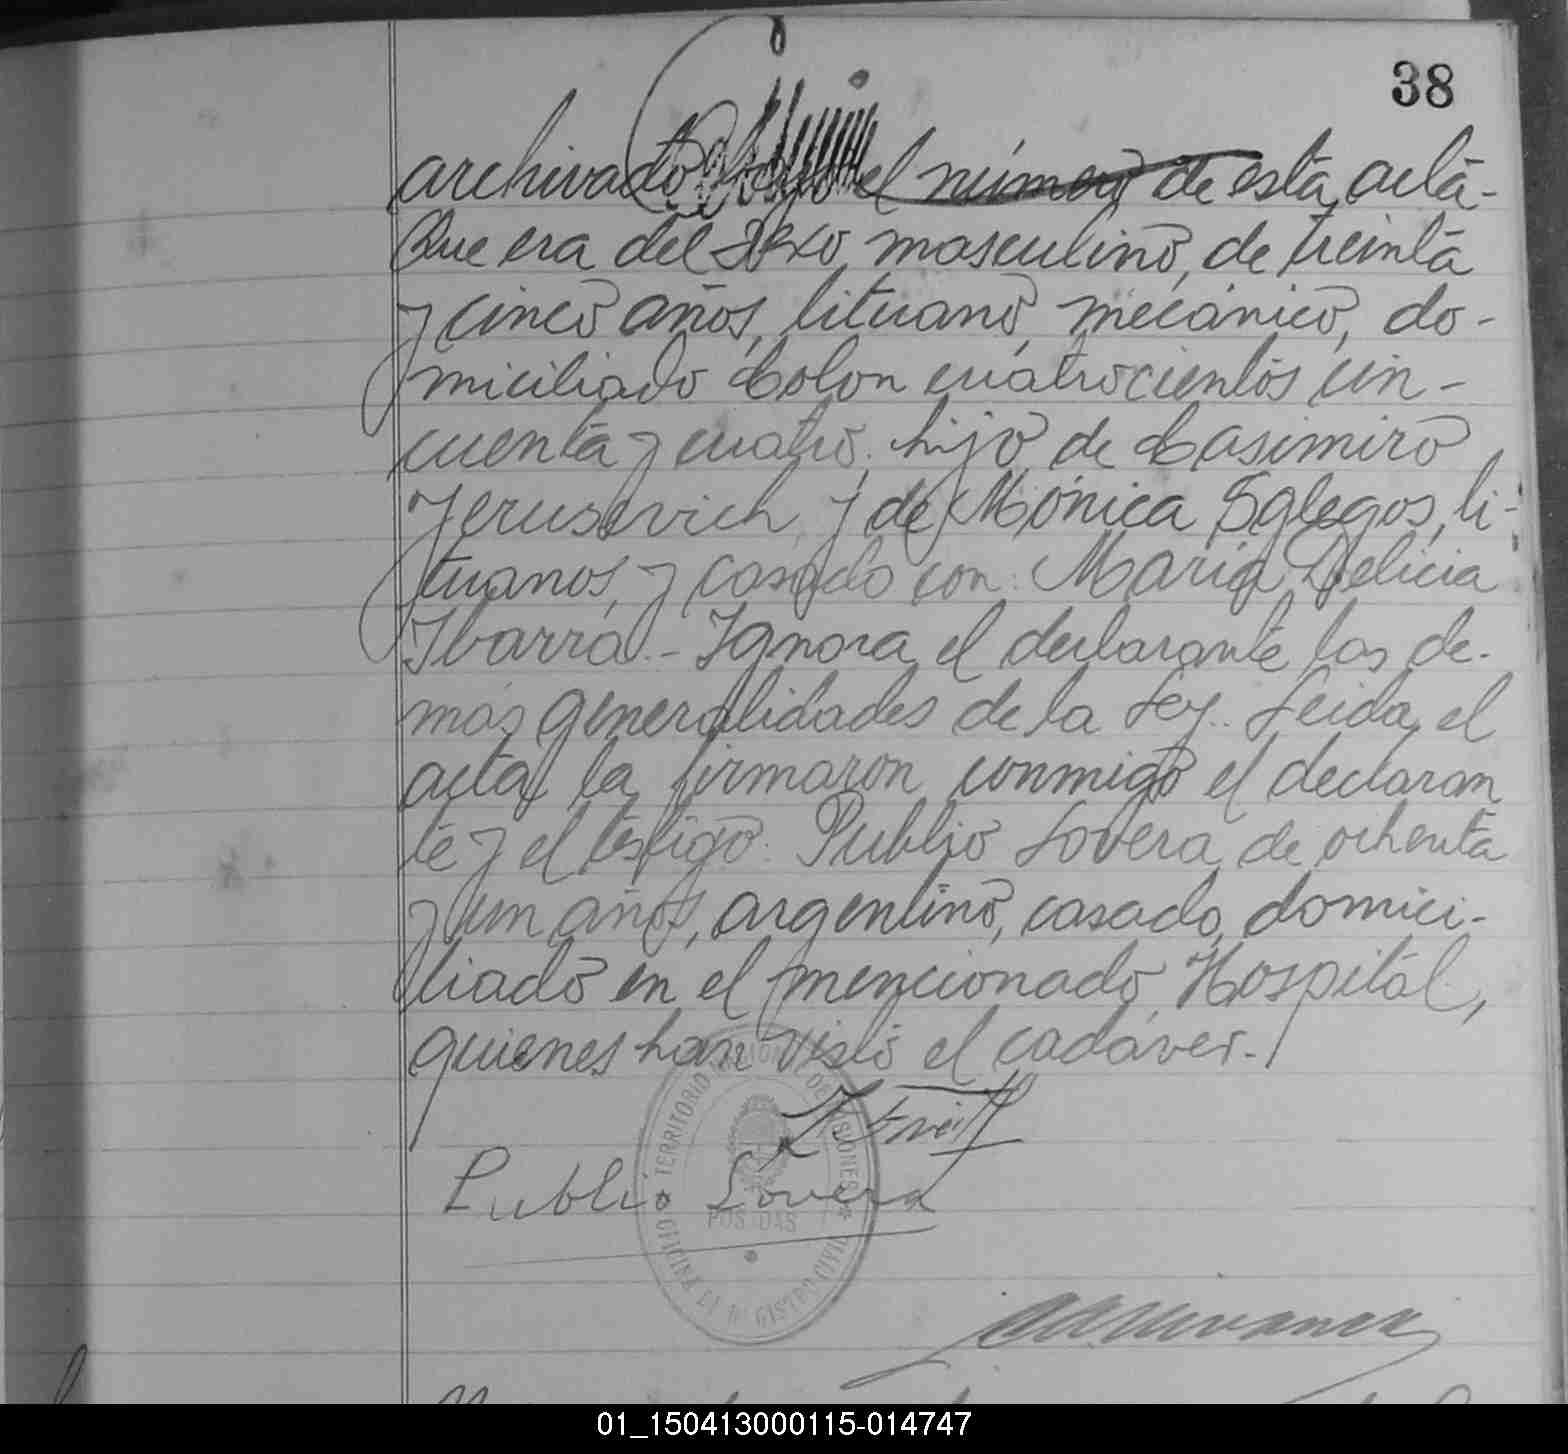 38
archivado bajo el número de esta acta-
Que era del sexo masculino, de treinta
y cinco años, lituano, mecánico, do-
miciliado Colon cuatrocientos cin-
cuenta y cuatro, hijo de Casimiro
Yerusevich, y de Mónica Sglegos, li-
tuanos, y casado con: Maria Delicia
Ibarra.- Ignora el declarante las de-
más generalidades de la Ley. Leida el
acta, la firmaron conmigo el declaran
te y el testigo: Publio Lovera, de ochenta
y un años, argentino, casado, domici-
liado en el mencionado Hospital,
quienes han visto el cadáver.-
Publio Lovera
TERRITORIO NACIONAL DE MISIONES
POSADAS
OFICINA DE REGISTRO CIVIL
01_150413000115-014747